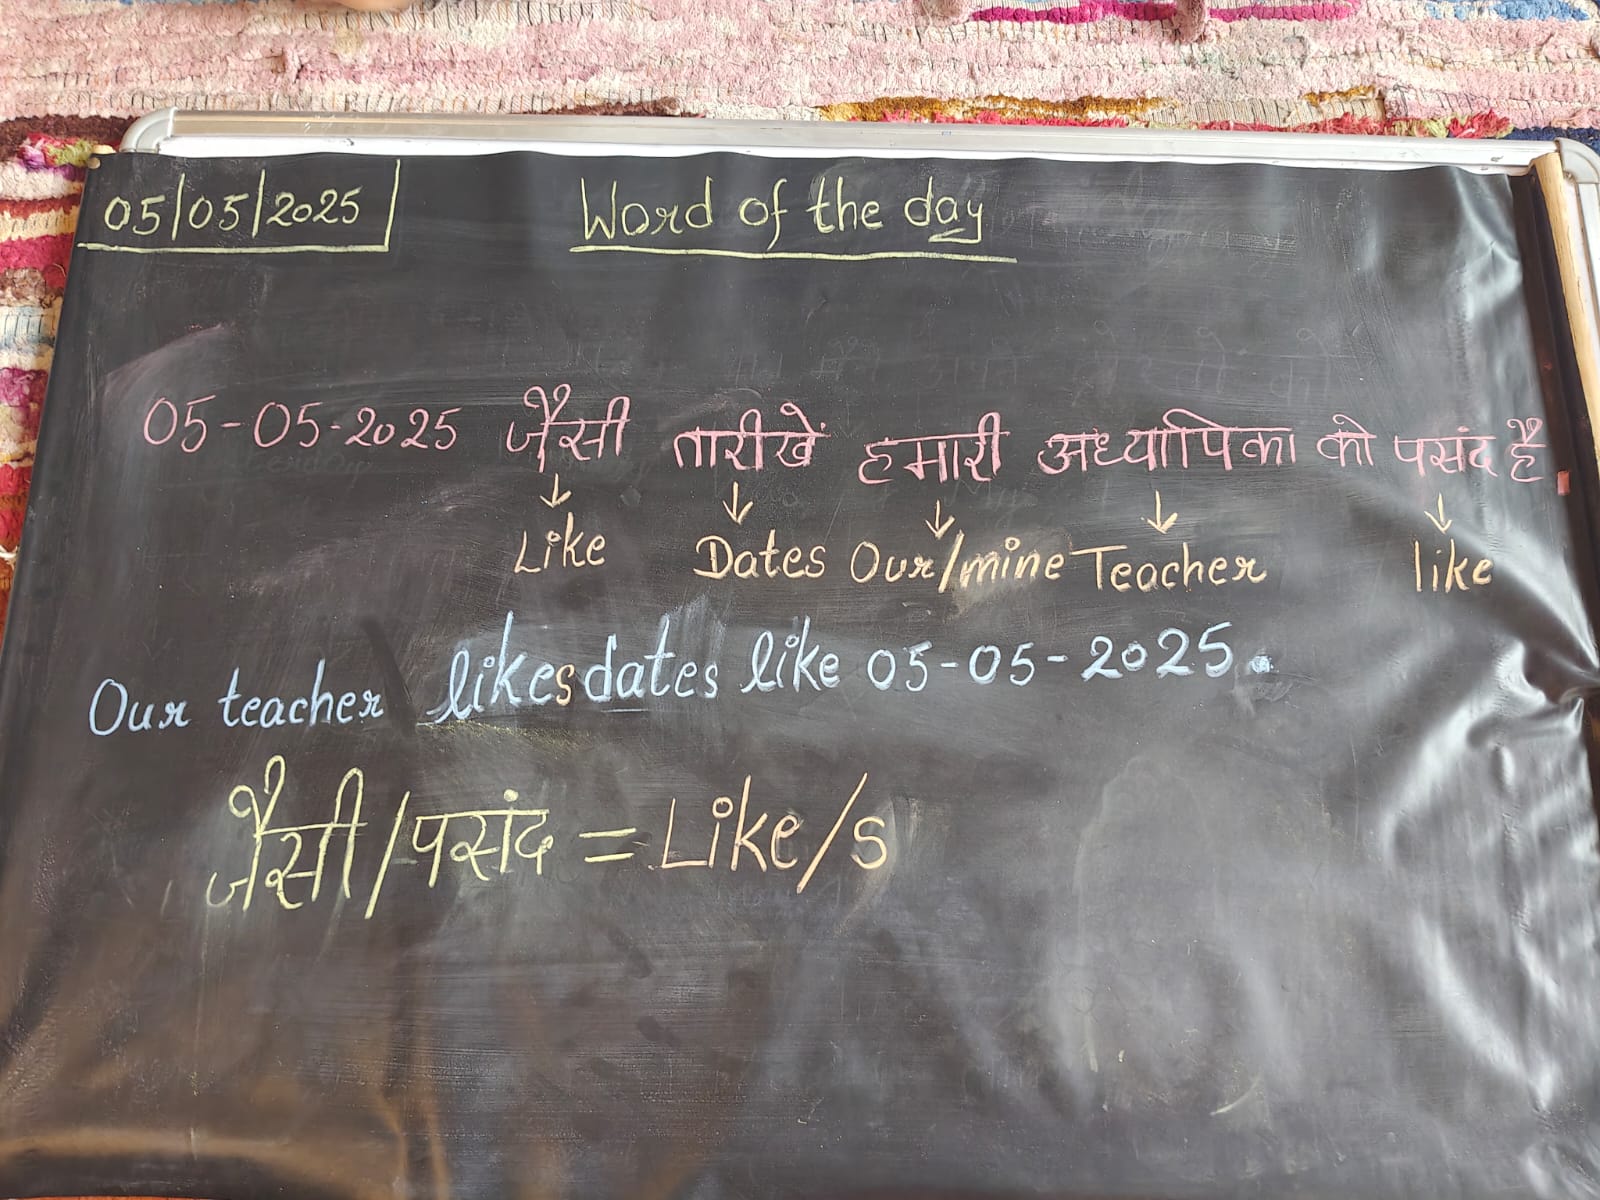 05/05/2025
Word of the day
05-05-2025 जैसी तारीखें हमारी अध्यापिका को पसंद है.
↓ ↓ ↓ ↓ ↓
Like Dates Our/mine Teacher like
Our teacher likes dates like 05-05-2025.
जैसी/पसंद = Like/s